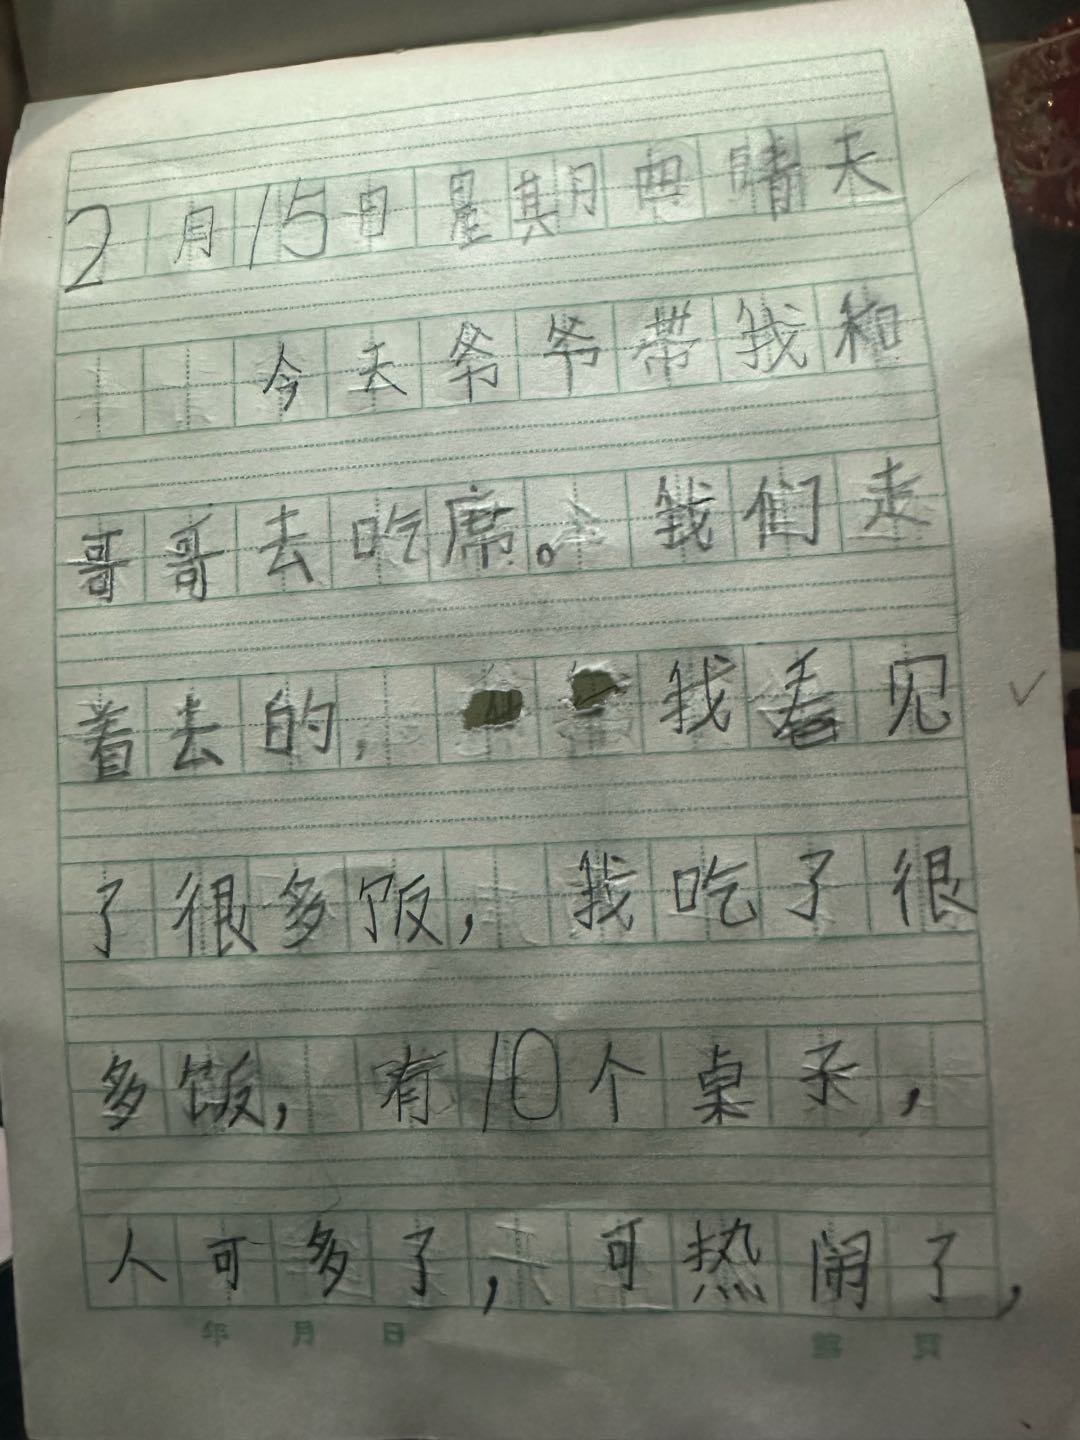 2月15日星期四晴天
今天爷爷带我和
哥哥去吃席。我们走
着去的,我看见
了很多饭,我吃了很
多饭,有10个桌子,
人可多了,可热闹了,
年 月 日 第 页